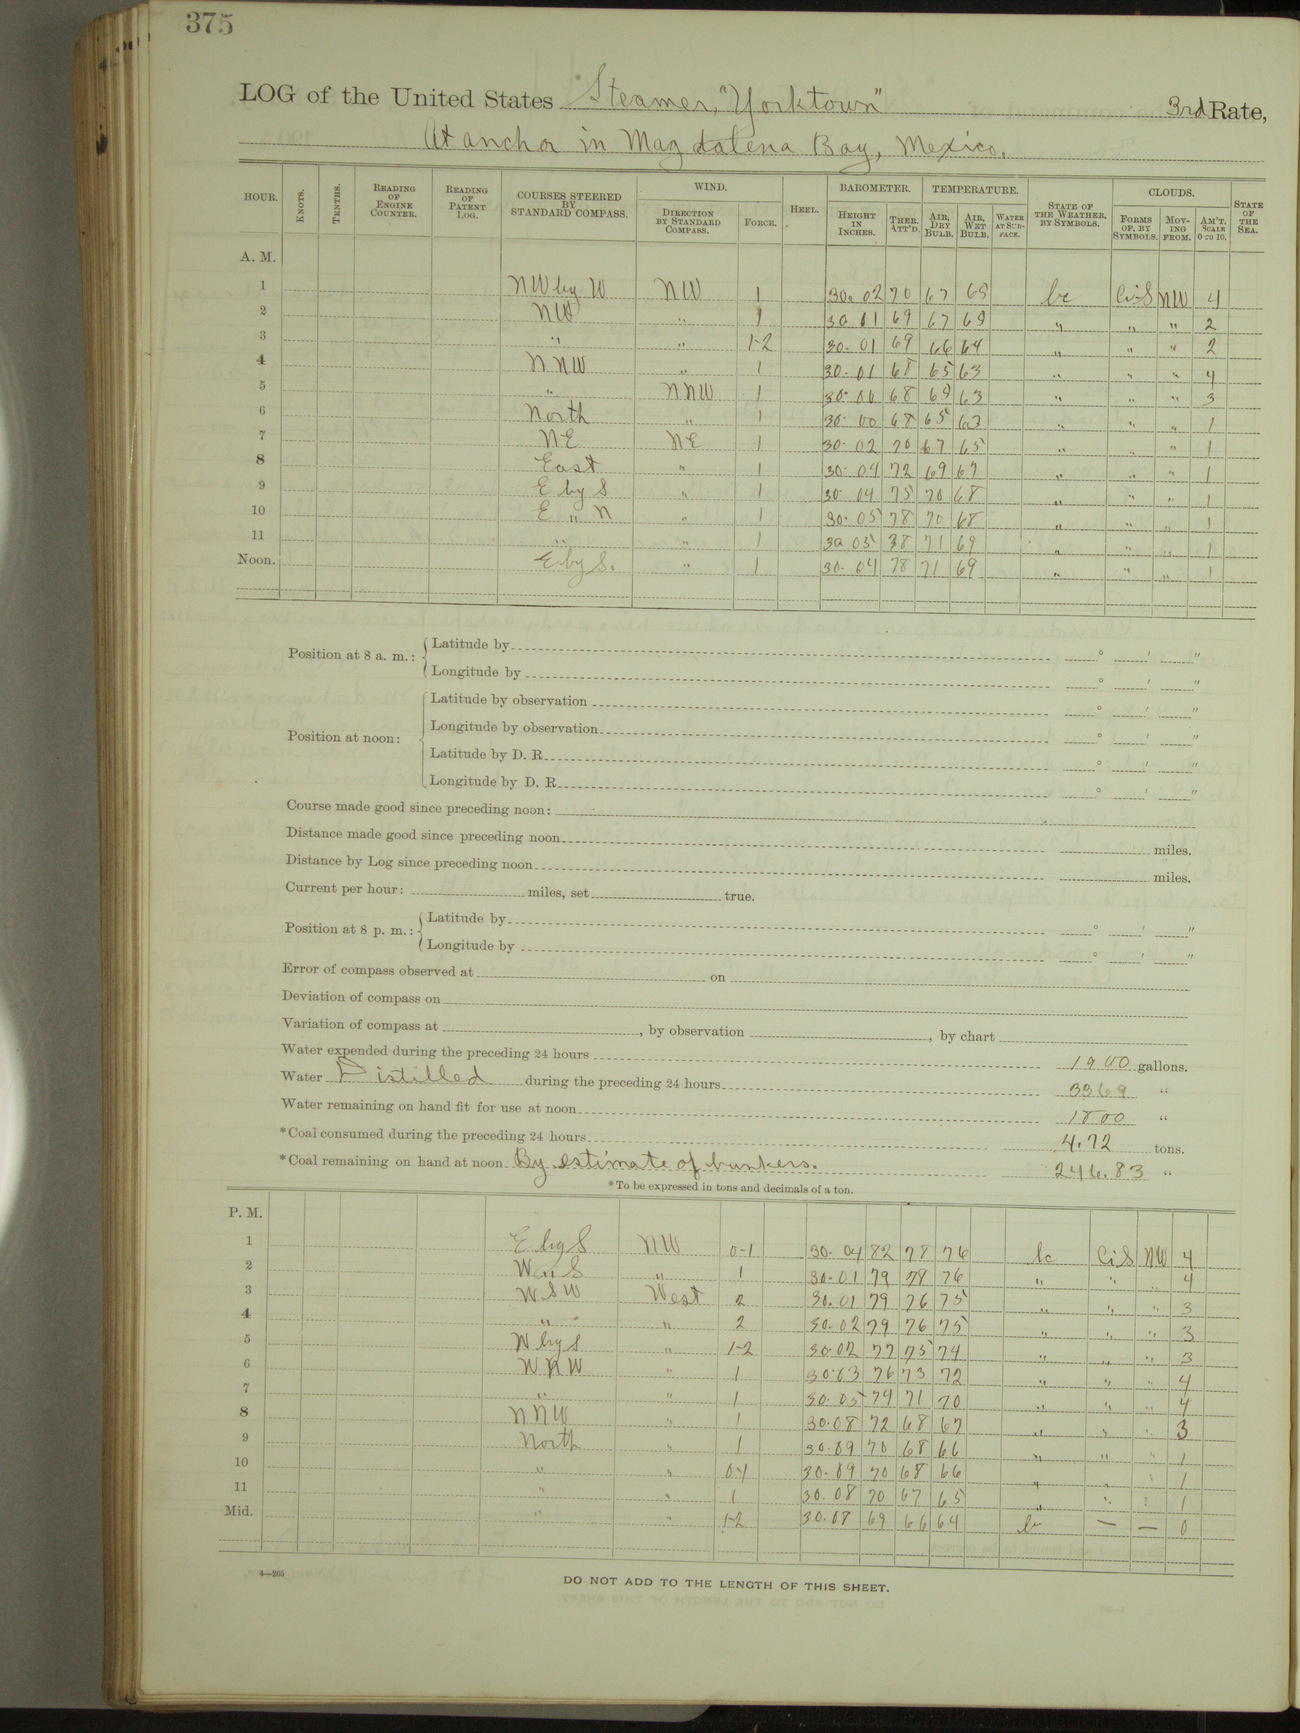 375
LOG of the United States Steamer, "Yorktown" 3rd Rate,
At anchor in Magdalena Bay, Mexico.
HOUR. KNOTS. TENTHS. READING OF ENGINE COUNTER. READING OF PATENT LOG. COURSES STEERED BY STANDARD COMPASS. WIND. DIRECTION BY STANDARD COMPASS. FORCE. HEEL. BAROMETER. HEIGHT IN INCHES. THER. ATT'D. TEMPERATURE. AIR, DRY BULB. AIR, WET BULB. WATER AT SURFACE. STATE OF THE WEATHER, BY SYMBOLS. CLOUDS. FORMS OF, BY SYMBOLS. MOVING FROM. AM'T. SCALE 0 TO 10. STATE OF THE SEA.
A. M.
1 NW by W NW 1 30.02 70 67 65 bc Ci-S NW 4
2 NW " 1 30 01 69 67 65 " " " 2
3 " " 1-2 30.01 69 66 64 " " " 2
4 NNW " 1 30.01 68 65 63 " " " 4
5 " NNW 1 30.00 68 65 63 " " " 3
6 North " 1 30.00 68 65 63 " " " 1
7 NE NE 1 30.02 70 67 65 " " " 1
8 East " 1 30.04 72 69 67 " " " 1
9 E by S " 1 30 04 75 70 68 " " " 1
10 E " N " 1 30.05 78 70 68 " " " 1
11 " " 1 30 05 38 71 69 " " " 1
Noon. E by S. " 1 30.04 78 71 69 " " " 1
Position at 8 a. m.: Latitude by ° ' "
Longitude by ° ' "
Position at noon: Latitude by observation ° ' "
Longitude by observation ° ' "
Latitude by D. R. ° ' "
Longitude by D. R. ° ' "
Course made good since preceding noon:
Distance made good since preceding noon miles.
Distance by Log since preceding noon miles.
Current per hour: miles, set true.
Position at 8 p. m.: Latitude by ° ' "
Longitude by ° ' "
Error of compass observed at on
Deviation of compass on
Variation of compass at , by observation , by chart
Water expended during the preceding 24 hours 1900 gallons.
Water Distilled during the preceding 24 hours 3369 "
Water remaining on hand fit for use at noon 1800 "
*Coal consumed during the preceding 24 hours 4.72 tons.
*Coal remaining on hand at noon By estimate of bunkers. 246.83 "
*To be expressed in tons and decimals of a ton.
P. M.
1 E by S NW 0-1 30.04 82 78 76 bc Ci S NW 4
2 W " S " 1 30.01 79 78 76 " " " 4
3 WSW West 2 30.01 79 76 75 " " " 3
4 " " 2 30.02 79 76 75 " " " 3
5 W by S " 1-2 30.02 77 75 74 " " " 3
6 WNW " 1 30.03 76 73 72 " " " 4
7 " " 1 30.05 74 71 70 " " " 4
8 NNW " 1 30.08 72 68 67 " " " 3
9 North " 1 30.09 70 68 66 " " " 1
10 " " 0-1 30.09 70 68 66 " " 1
11 " " 1 30.08 70 67 65 " " " 1
Mid. " " 1-2 30.08 69 66 64 — — 0
4—265
DO NOT ADD TO THE LENGTH OF THIS SHEET.